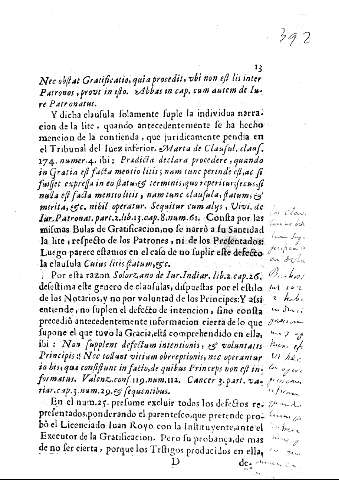 392
13
Nec obstat Gratificatio, quia procedit, vbi non est lis inter
Patronos, prove in esto. Abbas in cap. cum autem de Iu-
re Patronatus.
Y dicha clausula solamente suple la individua narra-
cion de la lite, quando antecedentemente se ha hecho
mencion de la contienda, que juridicamente pendia en
el Tribunal del Iuez inferior. Marta de Clausul. claus.
174. numer. 4. ibi: Prædicta declara procedere, quando
in Gratia est facta mentio litis; nam tunc perinde est, ac si
fuisset expressa in eo statu, & terminis, quo reperitur; secus: si
nulla est facta mentio litis, nam tunc clausula, statum, &
merita, &c. nihil operatur. Sequitur cum alijs, Vivi. de
Iur. Patronat. part. 2. lib. 13. cap. 8. num. 61. Consta por las
mismas Bulas de Gratificacion, no se narrò a su Santidad
la lite, respecto de los Patrones, ni de los Presentados:
Luego parece estamos en el caso de no suplir este defecto
la clausula Cuius litis statum, &c.
Por esta razon Solorzano de Iur. Indiar. lib. 2. cap. 26.
desestima este genero de clausulas, dispuestas por el estilo
de los Notarios, y no por voluntad de los Principes: Y assi
entiende, no suplen el defecto de intencion, sino consta
precediò antecedentemente informacion cierta de lo que
supone el que tovo la Gracia, está comprehendido en ella,
ibi: Non supplent defectum intentionis, & voluntatis
Principis: Nec tollunt vitium obreptionis, nec operantur
in his, qua consistunt in facto, de quibus Princeps non est in-
formatus. Valenz. conf. 119. num. 112. Cancer 3. part. va-
riar. cap. 3. num. 29. & sequentibus.
En el num. 25. presume excluir todos los defectos re-
presentados, ponderando el parentesco, que pretende pro-
bó el Licenciado Iuan Royo con la Instituyente, ante el
Executor de la Gratificacion. Pero su probança, de mas
de no ser cierta, porque los Testigos producidos en ella,
D
de-